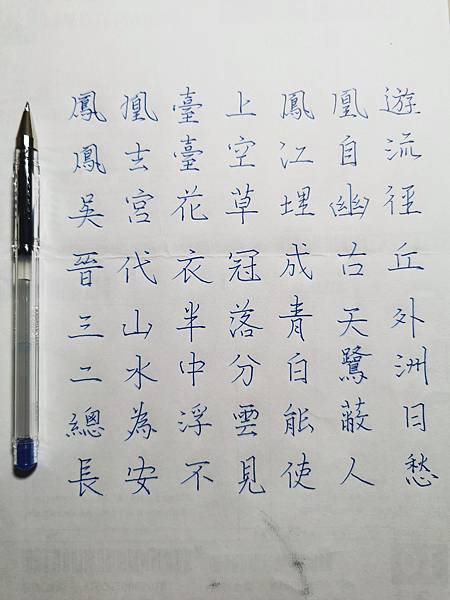 鳳凰臺上鳳凰遊
鳳去臺空江自流
吳宮花草埋幽徑
晉代衣冠成古丘
三山半落青天外
二水中分白鷺洲
總為浮雲能蔽日
長安不見使人愁